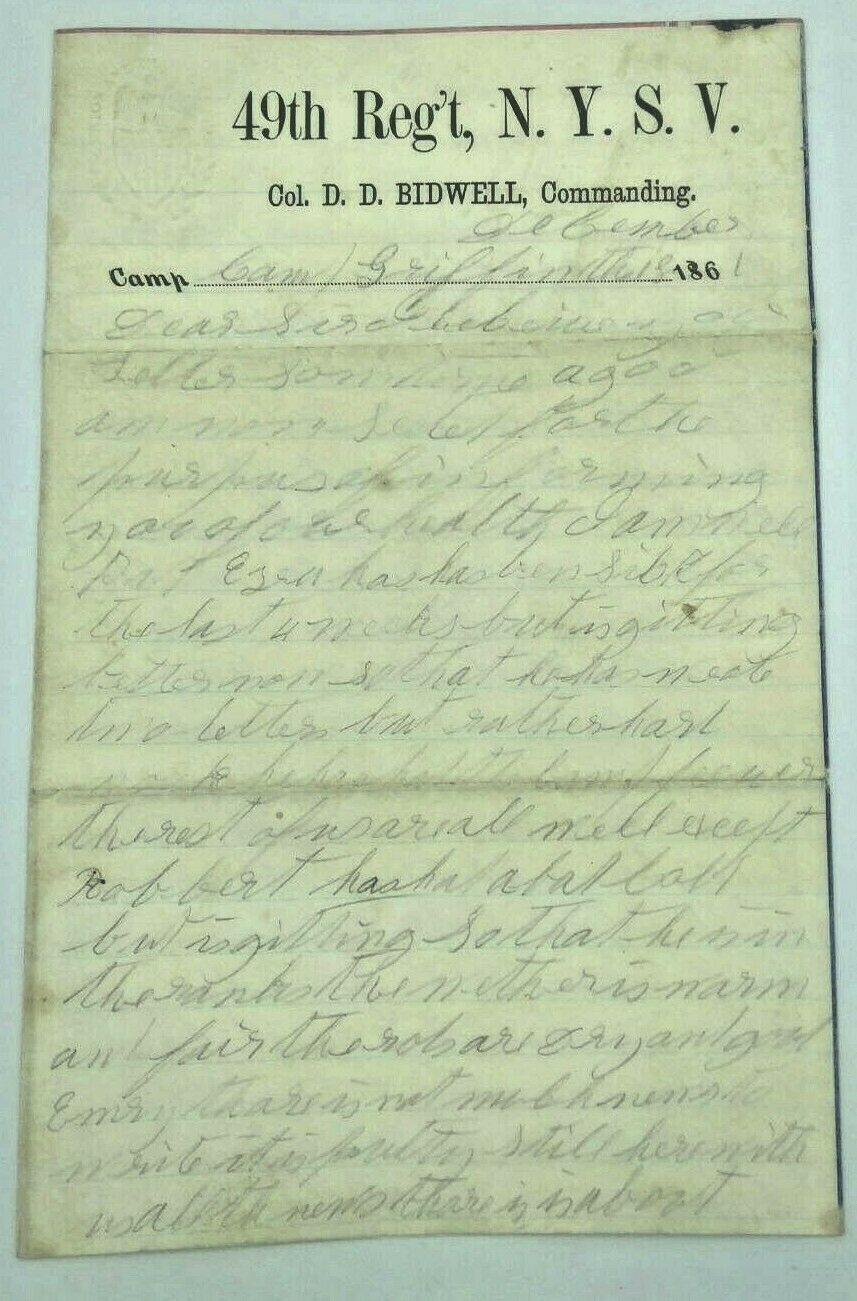 49th Reg't, N. Y. S. V.
Col. D. D. BIDWELL, Commanding.
December
Camp Camp Griffin the 186 1
Dear Sir
letter some time ago
am now for the
purpus of in forming
you of our healty I am well
But Ezra has has ben sibk for
the last 4 weeks but is gitting
better now so that he has
two letters but rather hard
work he has had the camp feaver
the rest of us are all well except
Robbert has had a bad cold
but is gitting so that he is in
the ranks the wether is warm
and fair the rods are dry and good
Emry thare is not much news to
write it is pretty still here with
us all the news thare is is about